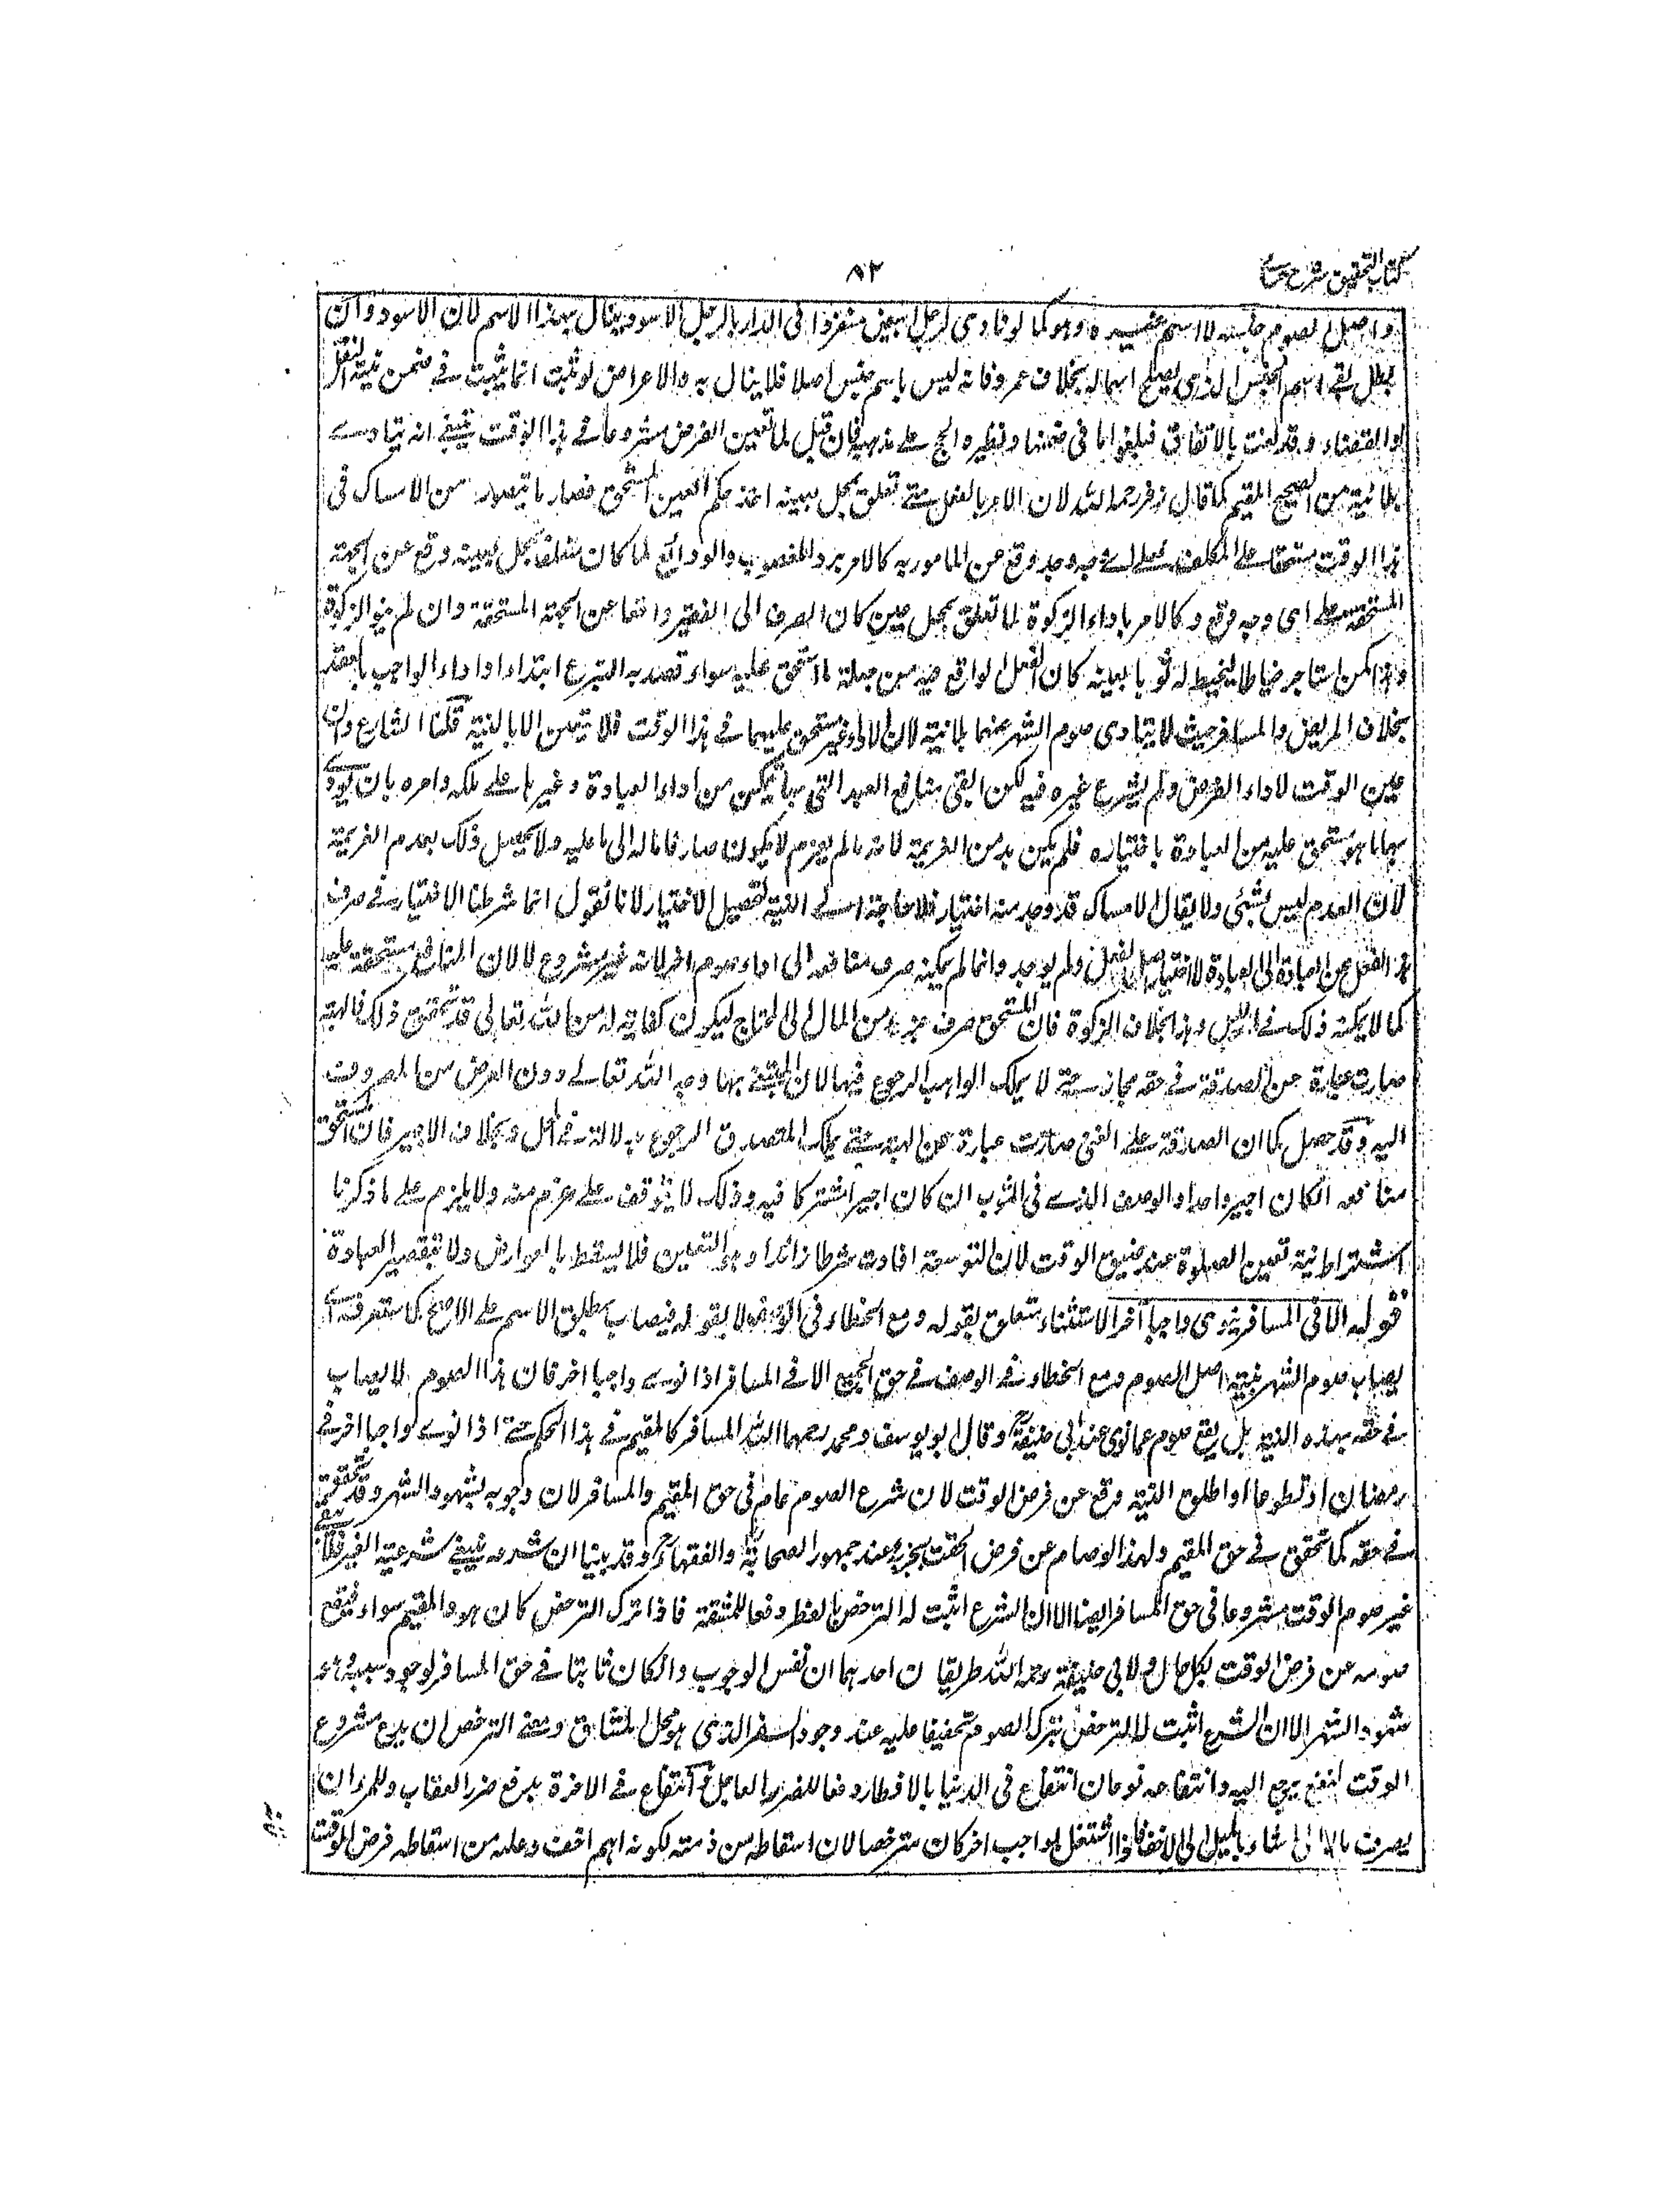 كتاب التحقيق شرح حسامى
٨٢
واصل الصوم جنسه لا اسم غيره وهو كما لو نادى لرجل ابيض منفردا فى الدار بالرجل الاسود ينال بهذا الاسم لان الاسود وان
بطل بقى اسم الجنس الذى يصلح اسما له بخلاف عمرو فانه ليس باسم جنس اصلا فلا ينال به والاعراض لو ثبت انما يثبت فى ضمن نية النفل
او القضاء وقد لغت بالاتفاق فيلغو ما فى ضمنها ونظيره الحج على مذهبه فان قيل لما تعين الفرض مشروعا فى هذا الوقت ينبغى انه يتادى
بلا نية من الصحيح المقيم كما قال زفر رحمه الله لان الامر بالفعل متى تعلق بمحل بعينه اخذ حكم العين المستحق فصار ما يتصور من الامساك فى
هذا الوقت مستحقا على المكلف فعلى اى وجه وجد وقع عن المامور به كالامر برد المغصوب والودائع لما كان متعلقا بمحل بعينه وقع عن الجهة
المستحقة على اى وجه وقع وكالامر باداء الزكوة لما تعلق بمحل عين كان الصرف الى الفقير واقعا عن الجهة المستحقة وان لم ينو الزكوة
وهذا كمن استاجر خياطا ليخيط له ثوبا بعينه كان الفعل الواقع فيه من جملة ما استحق عليه سواء قصد به التبرع ابتداء او اداء الواجب بالعقد
بخلاف المريض والمسافر حيث لا يتادى صوم الشهر عنهما بلا نية لان الاداء غير مستحق عليهما فى هذا الوقت فلا يتعين الا بالنية قلنا الشارع وان
عين الوقت لاداء الفرض ولم يشرع غيره فيه لكن ابقى منافع العبد التى بها يتمكن من اداء العبادة وغيرها على ملكه وامره بان يؤدى
بها ما هو مستحق عليه من العبادة باختياره فلم يكن بد من العزيمة لانه ما لم يعزم لا يكون صارفا ماله الى ما عليه ولا يحصل ذلك بعدم العزيمة
لان العدم ليس بشئ ولا يقال الامساك قد وجد منه اختيارا فلا حاجة الى النية لتحصيل الاختيار لانا نقول انما شرطنا الاختيار فى صرف
هذا الفعل عن العادة الى العبادة لا اختيار اصل الفعل ولم يوجد وانما لم يمكنه صرف منافعه الى اداء صوم اخر لانه غير مشروع لا لان المنافع مستحقة عليه
كما لا يمكنه ذلك فى الليل وهذا بخلاف الزكوة فان المستحق صرف جزء من المال الى المحتاج ليكون كفاية له من الله تعالى قد تحقق ذلك فالهبة
صارت عبارة عن الصدقة فى حقه مجازا حتى لا يملك الواهب الرجوع فيها لان المبتغى بها وجه الله تعالى دون العوض من المصروف
اليه وقد حصل كما ان الصدقة على الغنى صارت عبارة عن الهبة حتى يملك المتصدق الرجوع بدلالة فى المحل وبخلاف الاجير فان المستحق
منافعه ان كان اجير واحد او الوصف الذى فى الثوب ان كان اجيرا مشتركا فيه وذلك لا يتوقف على عزم منه ولا يلزم على ما ذكرنا
اشتراط نية تعيين الصلوة عند ضيق الوقت لان التوسعة افادت شرطا زائدا وهو التعيين فلا يسقط بالعوارض ولا بتقصير العباد
قوله الا فى المسافر ينوى واجبا آخر الاستثناء متعلق بقوله ومع الخطاء فى الوصف لا بقوله فيصاب بمطلق الاسم على الاصح كما ستعرف اى
يصاب صوم الشهر بنية اصل الصوم ومع الخطاء فى الوصف فى حق الجميع الا فى المسافر اذا نوى واجبا اخر فان هذا الصوم لا يصاب
فى حقه بهذه النية بل يقع صومه عما نوى عند ابى حنيفة وقال ابو يوسف ومحمد رحمهما الله المسافر كالمقيم فى هذا الحكم حتى اذا نوى واجبا اخر فى
رمضان او تطوعا او اطلق النية وقع عن فرض الوقت لان شرع الصوم عام فى حق المقيم والمسافر لان وجوبه بشهود الشهر وقد تحقق
فى حقه كما تحقق فى حق المقيم ولهذا لو صام عن فرض الوقت يجزيه عند جمهور الصحابة والفقهاء وقد بينا ان شرعه ينفى شرعية الغير فلا يبقى
غير صوم الوقت مشروعا فى حق المسافر ايضا الا ان الشرع اثبت له الترخص بالفطر دفعا للمشقة فاذا ترك الترخص كان هو والمقيم سواء فيقع
صومه عن فرض الوقت بكل حال ولابى حنيفة رحمه الله طريقان احدهما ان نفس الوجوب وان كان ثابتا فى حق المسافر لوجود سببه وهو
شهود الشهر الا ان الشرع اثبت له الترخص بترك الصوم تخفيفا عليه عند وجود السفر الذى هو محل المشاق ومعنى الترخص ان يدع مشروع
الوقت لنفع يرجع اليه وانتفاعه نوعان انتفاع فى الدنيا بالافطار دفعا للضرر العاجل وانتفاع فى الاخرة بدفع ضرر العقاب وللمرء ان
يصرف ماله الى ما شاء بالميل الى الاخف فاذا اشتغل بواجب اخر كان مترخصا لان اسقاطه من ذمته لكونه اهم اخف عليه من اسقاطه فرض الوقت